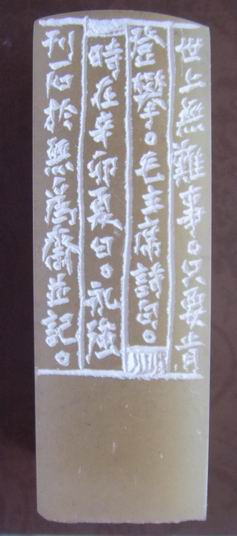 世上無難事。只要肯
登攀。毛主席詩句。
時在辛卯夏日。永隆
刊石於無為齋並記。